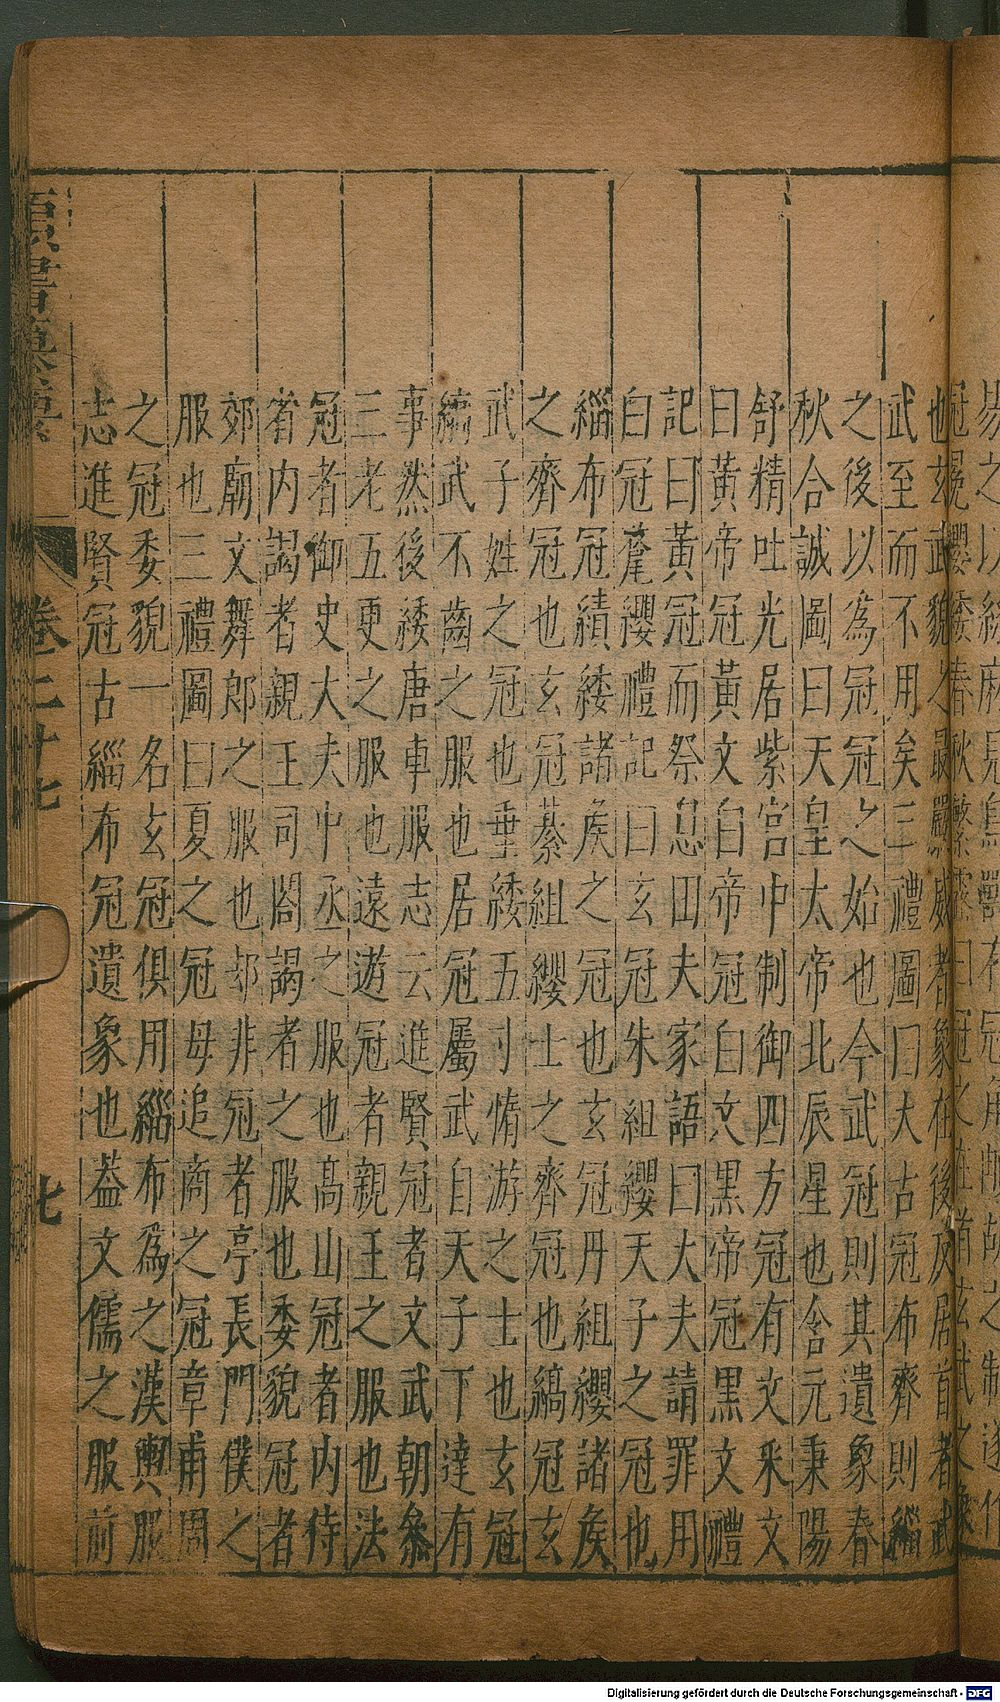 也玄武貌之最嚴威者象在後反居首者武
武至而不用矣三禮圖曰大古冠布齊則緇
之後以為冠冠之始也今武冠則其遺象春
秋合誠圖曰天皇太帝北辰星也含元秉陽
舒精吐光居紫宮中制御四方冠有文采文
曰黃帝冠黃文白帝冠白文黑帝冠黑文禮
記曰黃冠而祭息田夫家語曰大夫請罪用
白冠氂纓禮記曰玄冠朱組纓天子之冠也
緇布冠繢緌諸矦之冠也玄冠丹組纓諸矦
之齊冠也玄冠綦組纓士之齊冠也縞冠玄
武子姓之冠也垂緌五寸惰游之士也玄冠
縞武不齒之服也居冠屬武自天子下達有
事然後緌唐車服志云進賢冠者文武朝叅
三老五更之服也遠遊冠者親王之服也法
冠者御史大夫中丞之服也高山冠者內侍
省內謁者親王司閤謁者之服也委貌冠者
郊廟文舞郎之服也却非冠者亭長門僕之
服也三禮圖曰夏之冠母追商之冠章甫周
之冠委貌一名玄冠俱用緇布為之漢輿服
志進賢冠古緇布冠遺象也葢文儒之服前
卷二十七
七
Digitalisierung gefördert durch die Deutsche Forschungsgemeinschaft - DFG